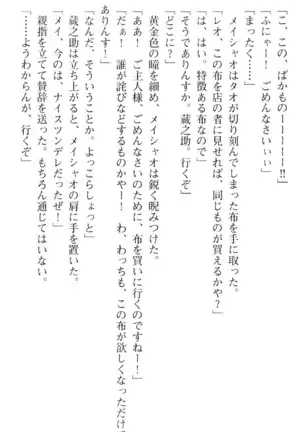 「こ、この、ばかものーーーーー!!」
「ふにゃー! ごめんなさいぃぃ」
「まったく……」
メイシャオはタオが切り刻んでしまった布を手に取った。
「レオ、この布を店の者に見せれば、同じものが買えるかや?」
「は、はい。特徴ある布なので」
「そうでありんすか。蔵之助。行くぞ」
「どこに?」
黄金色の瞳を細め、メイシャオは鋭く睨みつけた。
「ああ! ご主人様、ごめんなさいのために、布を買いに行くのですねー!」
「だぁ! 誰が詫びなどするものかやー! わ、わっちも、この布が欲しくなっただけで
ありんす!」
「なんだ、そういうことか。よっこらしょっと」
蔵之助は立ち上がると、メイシャオの肩に手を置いた。
「メイ、今のは、ナイスツンデレだったぜ!」
親指を立てて賛辞を送った。もちろん通じてはいない。
「……ようわからんが、行くぞ」